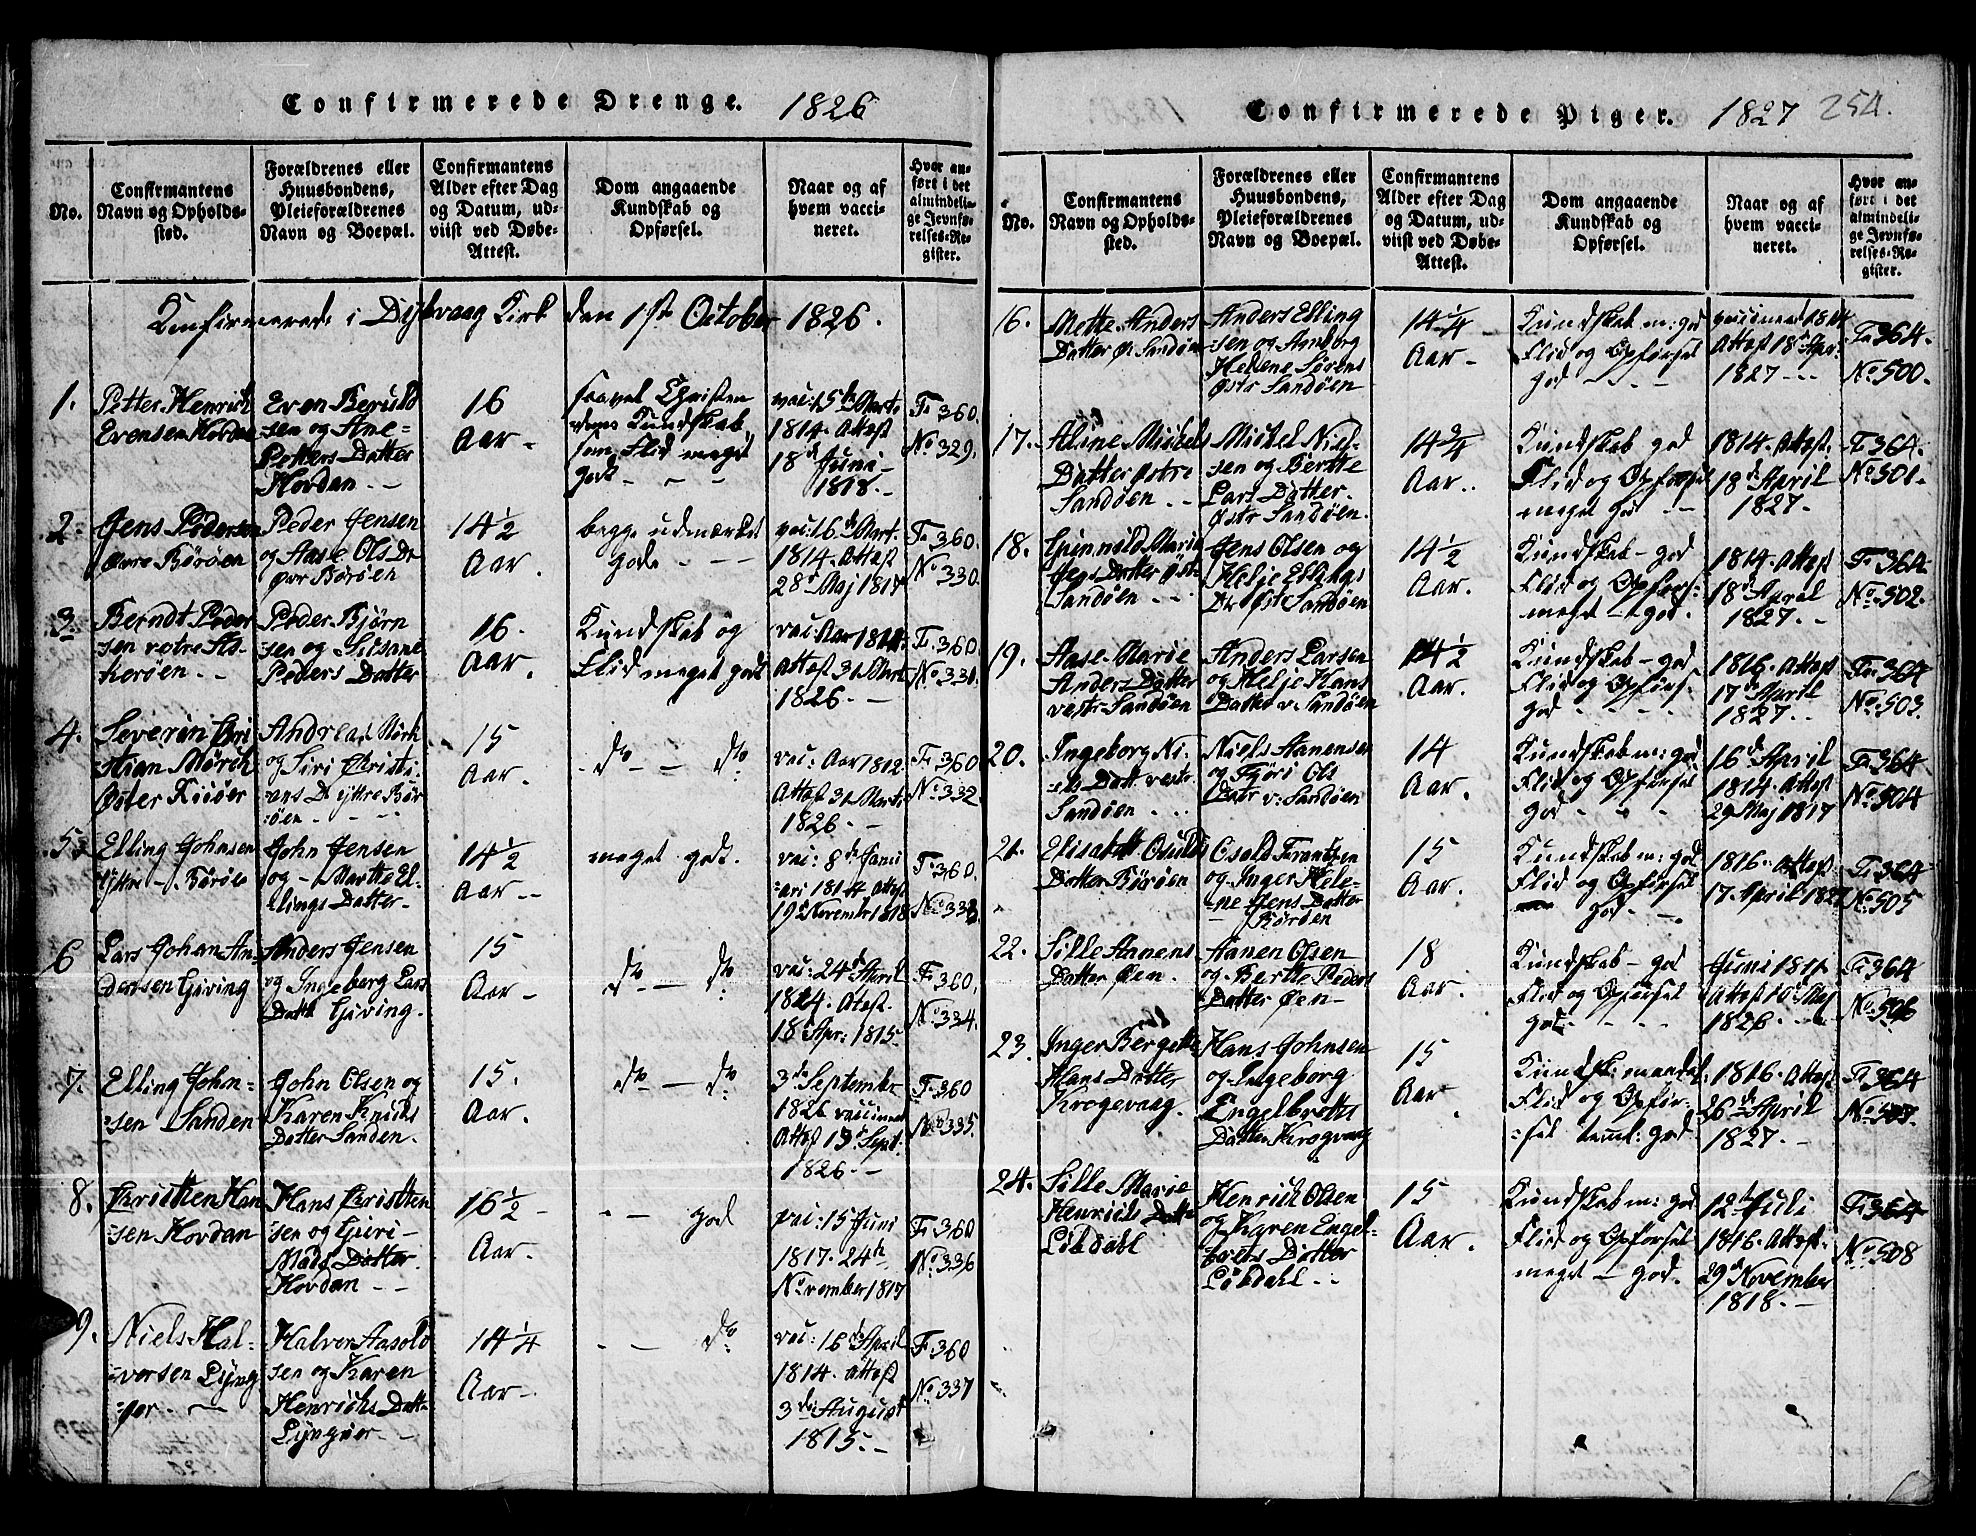 Confirmerede Drenge. 1826
No.
Confirmantens
Navn og Opholds-
sted.
Forældrenes eller
Huusbondens,
Pleieforældrenes
Navn og Boepæl.
Confirmantens
Alder efter Dag
og Datum, ud-
viist ved Døbe-
Attest.
Dom angaaende
Kundskab og
Opførsel.
Naar og af
hvem vacci-
neret.
Hvor an-
ført i det
almindeli-
ge Jevnfø-
relses-Re-
gister.
Confirmerede i Dybvaag Kirk den 1ste October 1826.
1.
Petter Henrich
Evensen Hovdan
Even Beruld
sen og Ane
Petters Datter
Hovdan - -
16
Aar -
saavel Christen
doms Kundskab
som Flid meget
godt - - -
vac: 15de Marts
1814. Attest
18d Juni
1818. -
F. 360.
No. 329.
2.
Jens Pedersen
øvre Börøen
Peder Jensen
og Aase Ols Dr
øvr Börøen
14 1/2
Aar.
begge udmærket
gode - - -
vac: 16d Mart.
1814. Attest
28d Maj 1817
F. 360.
No. 330.
3.
Berndt Peder
sen vestre As-
kerøen. - -
Peder Bjørn
sen og Susane
Peders Datter
16.
Aar.
Kundskab og
Flid meget godt
vac: Aar 1814.
Attest 31 Mart
1826. -
F. 360.
No. 331.
4.
Severin Cri
stian Mørch
Øster Riisøer
Andreas Mørk
og Siri Christi-
ans D yttre Bör
øen - - -
15
Aar.
do - - do
vac: Aar 1812.
Attest 31 Marts
1826. -
F. 360
No. 332.
5.
Elling Johnsen
yttre - Börøe
John Jensen
og - Marthe El-
lings Datter -
14 1/2
Aar - -
meget godt.
vac: 8de Janu
ari 1814 Attest
19d Novembr 1818
F. 360.
No. 333.
6
Lars Johan An-
dersen Giving
Anders Jensen
og Ingeborg Lars
Datt Giving.
15
Aar -
do - - do
vac: 24d April
1824. Attest
18d Apr: 1815.
F. 360.
No. 334.
7.
Elling John-
sen Sanden
John Olsen og
Karen Knuds
Datter Sanden.
15.
Aar.
do - do
3de Septembr
1826 vaccineret
Attest 13d Sept.
1826. -
F. 360
No. 335.
8.
Christen Han
sen Hovdan
Hans Christen
sen og Guri -
Mads Datter
Hovdan - -
16 1/2 -
Aar -
- - god
vac: 15 Juni
1817. 24de
November 1817
F. 360
No. 336
9.
Niels Hal-
vorsen Lyng
ør. -
Halvor Aasold
sen og Karen
Henrichs Datt.
Lyngøer - -
14 1/4
Aar -
- - do
vac: 16d April
1814. Attest
3die August
1815. -
F. 360
No. 337
Confirmerede Piger. 1827 254.
No.
Confirmantens
Navn og Opholds-
sted.
Forældrenes eller
Huusbondens,
Pleieforældrenes
Navn og Boepæl.
Confirmantens
Alder efter Dag
og Datum, ud-
viist ved Døbe-
Attest.
Dom angaaende
Kundskab og
Opførsel.
Naar og af
hvem vacci-
neret.
Hvor an-
ført i det
almindeli-
ge Jevnfø-
relses-Re-
gister.
16.
Mette Anders
Datter Ø. Sandøen
Anders Elling
sen og Anborg
Helene Sørens
Østr Sandøen
14 1/4
Aar -
Kundskab m: god
Flid og Opførsel
god - - -
vaccineret 1814
Attest 18d Apr:
1827 - - -
F. 364.
No. 500.
17.
Aline Michels
Datter Østre
Sandøen. - -
Michel Niel-
sen og Berthe
Lars Datter.
Østr Sandøen.
14 3/4
Aar. .
Kundskab god
Flid og Opførsel
meget god - -
1814. Attest.
18d April
1827. -
F. 364.
No. 501.
18.
Gunnild Marie
Jens Datter Østr
Sandøen. - -
Jens Olsen og
Helje Ellings
Dr Østr Sandøen
14 1/2
Aar.
Kundskab - god
Flid og Opførs-
meget - god.
1814. Attest
18d April
1827. -
F. 364.
No. 502.
19.
Aase Marie
Anders Datter
vestr Sandøen
Anders Larsen
og Helje Hans
Datter v: Sandøen
14 1/2
Aar.
Kundskab - god
Flid og Opførs-
god - - -
1816. Attest
17d April
1827. -
F. 364
No. 503.
20.
Ingeborg Ni-
els Datt vestr
Sandøen - -
Niels Aanensen
og Gjøri Ols
Dater v: Sandøen
14
Aar.
Kundskab m: god
Flid og Opførsel
god - - -
16d April
1814. Attest
29 Maj 1817
F. 364
No. 504
21.
Elisabett Osulds
Datter Börøen
Osold Frantzen
og Inger Hele-
ne Jens Datter
- Börøen
15
Aar.
Kundskab m: god
Flid og Opførsel
god. -
1816. Attest
17. April 1827
F. 364
No. 505
22.
Sille Aanens
Datter Øen.
Aanen Olsen
og Berthe Peders
Datter Øen -
18
Aar.
Kundskab - god
Flid og Opførsel
god - - -
Juni 1811.
Attest 16d Maj
1826. - -
F. 364
No. 506
23.
Inger Bergitte
Hans Datter
Krogevaag.
Hans Johnsen
og Ingeborg
Engelbretts
Datter Krogvaag
15
Aar
Kundsk: maadel:
Flid og Opfør-
sel teml: god
1816. Attest
26de April
1827. -
F. 364
No. 507.
24.
Sille Marie
Henrichs Datt.
Løkdahl
Henrich Olsen
og Karen Engel-
brets Datter
Løkdahl - -
15
Aar.
Kundskab m: god
Flid og Opførsel
meget - god.
12te Juli
1816. Attest.
29d November
1818. -
F. 364
No. 508